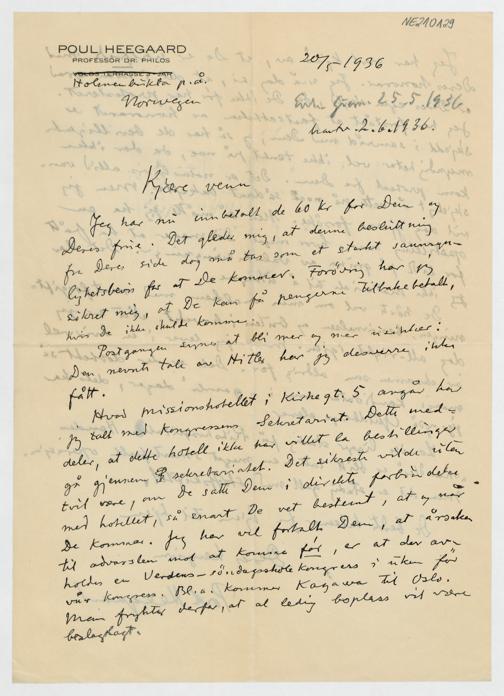 NE210A29
POUL HEEGAARD
PROFESSOR DR. PHILOS
VOLDS TERRASSE
20/5 - 1936
Holmenbukta p.å.
Norwegen
25.5.1936.
2.6.1936.
Kjære venn
Jeg har nu innbetalt de 60 kr for Dem og
Deres frue. Det gleder mig, at denne beslutning
fra Deres side dog må tas som et sterkt sannsyn-
lighetsbevis for at De kommer. Forøvrig har jeg
sikret mig, at De kan få pengene tilbakebetalt,
hvis De ikke skulde komme.
Postgangen synes at bli mer og mer usikker:
Den nevnte tale av Hitler har jeg desverre ikke
fått.
Hvad missionshotellet i Kirkegt. 5 angår har
jeg talt med kongressens Sekretariat. Dette med-
deler, at dette hotell ikke har villet ta bestillinger
gå gjennem sekretariatet. Det sikreste vilde uten
tvil være, om De satte Dem i direkte forbindelse
med hotellet, så snart De vet bestemt, at og når
De kommer. Jeg har vel fortalt Dem, at årsaken
til advarslen mot at komme før, er at der av-
holdes en Verdens-søndagsskolekongress i uken før
vår kongress. Bl.a. kommer Kagawa til Oslo.
Man frykter derfor, at al ledig boplass vil være
beslaglagt.